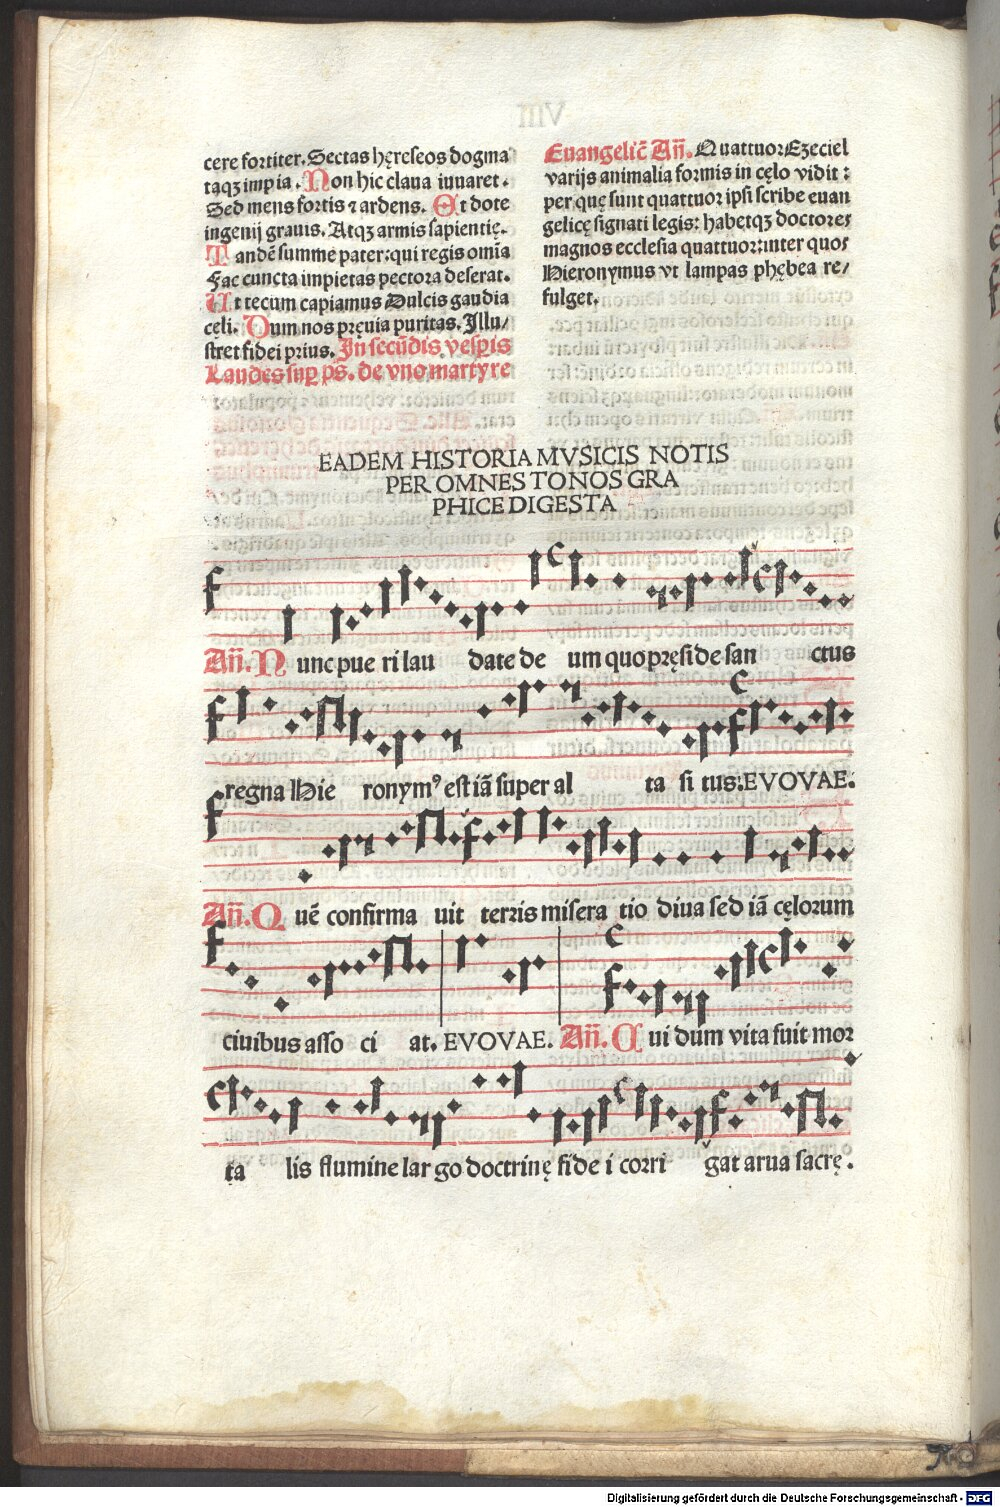 cere fortiter. Sectas hęreseos dogma
taqꝫ impia. Non hic claua iuuaret.
Sed mens fortis ⁊ ardens. Et dote
ingenij grauis. Atqꝫ armis sapientię.
Tandē summe pater: qui regis omīa
Fac cuncta impietas pectora deserat.
Ut tecum capiamus Dulcis gaudia
cęli. Dum nos pręuia puritas. Illu/
stret fidei prius. In secūdis vesp̄is
Laudes sup̄ ps. de vno martyre
Euangelic̄ Añ. Quattuor Ezeciel
varijs animalia formis in cęlo vidit:
per quę sunt quattuor ipsi scribe euan
gelicę signati legis: habetqꝫ doctores
magnos ecclesia quattuor: inter quos
Hieronymus vt lampas phębea re/
fulget.
EADEM HISTORIA MVSICIS NOTIS
PER OMNES TONOS GRA
PHICE DIGESTA
Añ. N unc pue ri lau date de um quo pręside san ctus
regna Hie ronymꝰ est iā super al ta si tus: EVOVAE.
Añ. Q uē confirma uit terris misera tio diua sed iā cęlorum
ciuibus asso ci at. EVOVAE. Añ. Q ui dum vita fuit mor
ta lis flumine lar go doctrinę fide i corri gat arua sacrę.
Digitalisierung gefördert durch die Deutsche Forschungsgemeinschaft - DFG